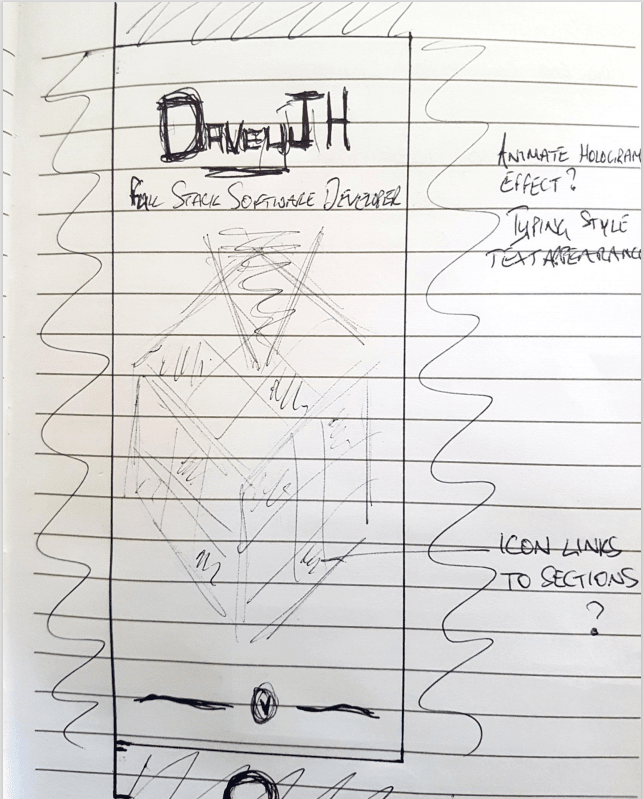 DAVEYJTH
FULL STACK SOFTWARE DEVELOPER
ANIMATE HOLOGRAM
EFFECT?
TYPING STYLE
TEXT APPEARANC
ICON LINKS
TO SECTIONS
?